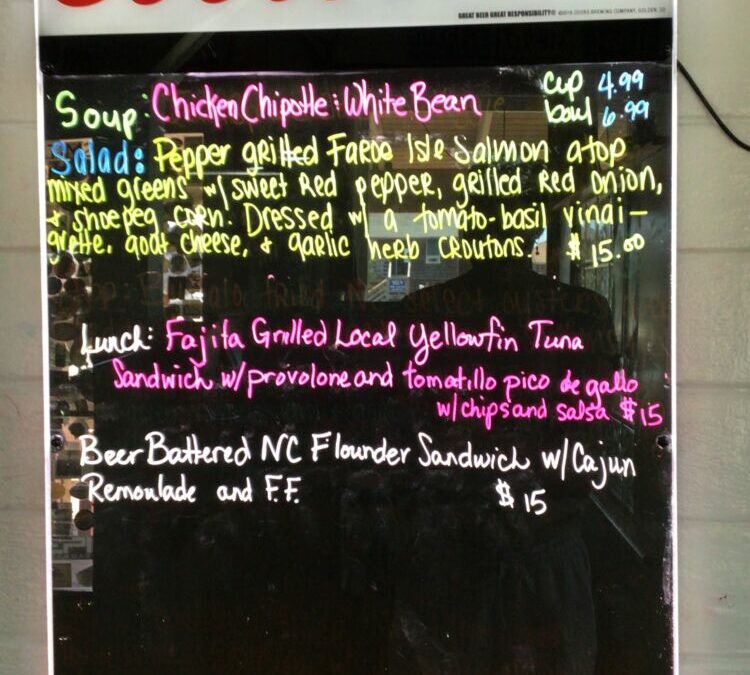 GREAT BEER GREAT RESPONSIBILITY®
Soup: Chicken Chipotle & White Bean
cup 4.99
bowl 6.99
Salad: Pepper grilled Faroe Isle Salmon atop
mixed greens w/ sweet Red pepper, grilled Red onion,
& shoepeg corn. Dressed w/ a tomato-basil vinai-
grette, goat cheese, & garlic herb croutons. $15.00
Lunch: Fajita Grilled Local Yellowfin Tuna
Sandwich w/ provolone and tomatillo pico de gallo
w/ chips and salsa $15
Beer Battered NC Flounder Sandwich w/ Cajun
Remoulade and F.F. $15